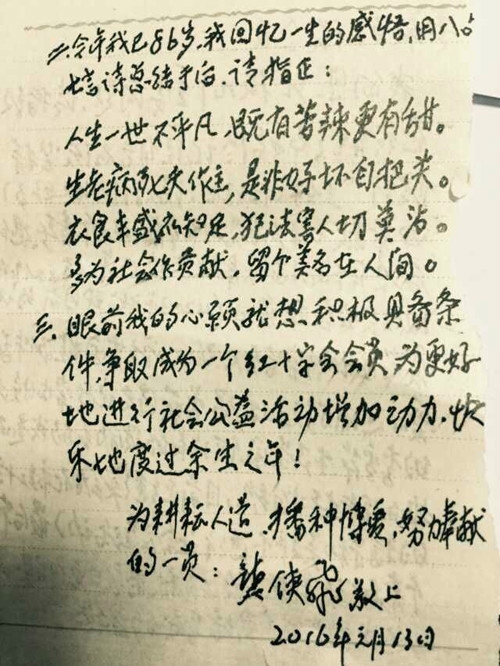 二.今年我已86岁,我回忆一生的感悟,用八句
七言诗总结于后,请指正:
人生一世不平凡,既有苦辣更有甜。
生老病死天作主,是非好坏自把关。
衣食丰盛知足,犯法害人切莫沾。
多为社会作贡献,留个美名在人间。
三.眼前我的心愿就想积极具备条
件争取成为一个红十字会会员为更好
地进行社会公益活动增加动力,快
乐地度过余生之年!
为耕耘人道,播种博爱,努力奉献
的一员:龚侠飞敬上
2016年元月13日